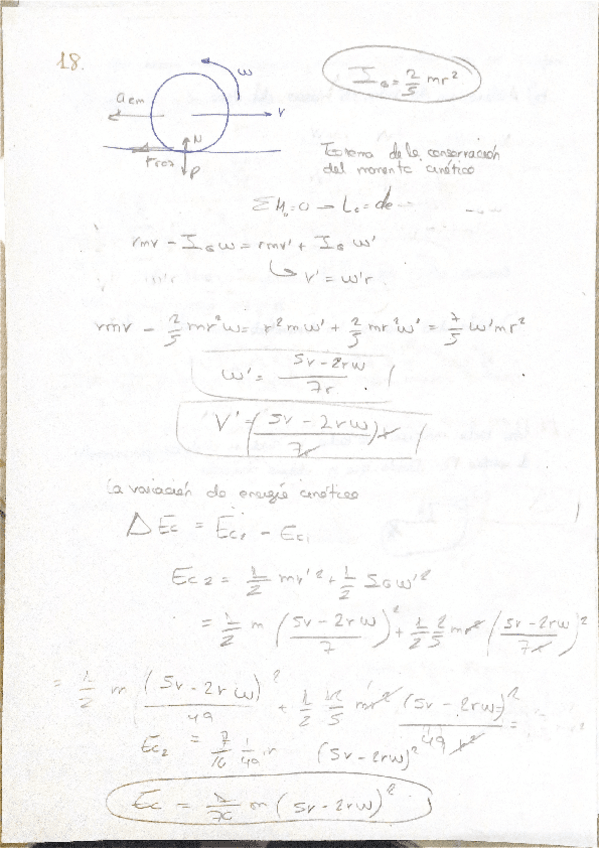 18.
I_G = 2/5 mr²
ω
a_cm
V
N
F_roz
P
Teorema de la conservación
del momento cinético
ΣM_o = 0 → L_o = cte
rmv − I_G ω = rmv' + I_G ω'
↪ v' = ω'r
rmv − 2/5 mr²ω = r²mω' + 2/5 mr²ω' = 7/5 ω'mr²
ω' = (5v − 2rω)/7r
V' = ((5v − 2rω)/7r) r
La variación de energía cinética
ΔEc = Ec₂ − Ec₁
Ec₂ = 1/2 mv'² + 1/2 I_G ω'²
= 1/2 m ((5v − 2rω)/7)² + 1/2 2/5 mr² ((5v − 2rω)/7r)²
= 1/2 m (5v − 2rω)²/49 + 1/2 2/5 mr² (5v − 2rω)²/49r² =
Ec₂ = 7/10 1/49 m (5v − 2rω)²
Ec = 1/70 m (5v − 2rω)²